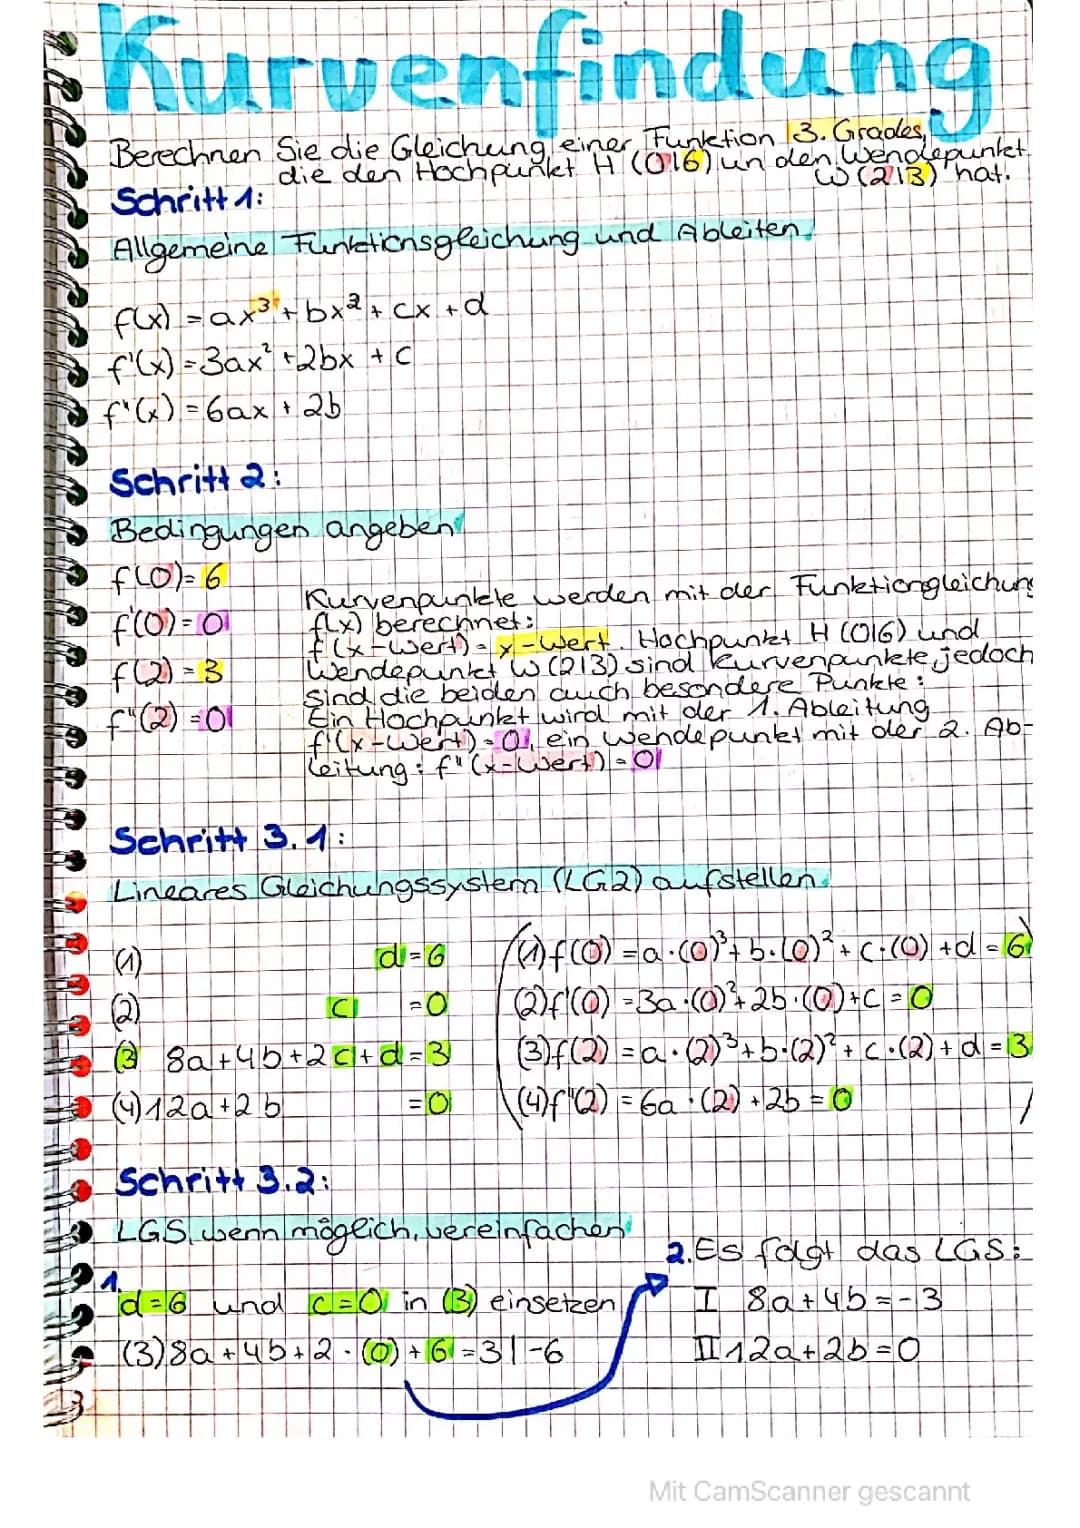 Kurvenfindung
Berechnen Sie die Gleichung einer Funktion 3. Grades,
die den Hochpunkt H (0|6) un den Wendepunkt
W(2|3) hat.
Schritt 1:
Allgemeine Funktionsgleichung und Ableiten
f(x) = ax³ + bx² + cx + d
f'(x) = 3ax² + 2bx + c
f"(x) = 6ax + 2b
Schritt 2:
Bedingungen angeben
f(0) = 6
f'(0) = 0
f(2) = 3
f"(2) = 0
Kurvenpunkte werden mit der Funktiongleichung
f(x) berechnet:
f(x-Wert) = y-Wert. Hochpunkt H (0|6) und
Wendepunkt W(2|3) sind Kurvenpunkte, jedoch
sind die beiden auch besondere Punkte:
Ein Hochpunkt wird mit der 1. Ableitung
f'(x-Wert) = 0, ein Wendepunkt mit der 2. Ab-
leitung: f"(x-Wert) = 0
Schritt 3.1:
Lineares Gleichungssystem (LG2) aufstellen
(1) d = 6
(2) c = 0
(3) 8a + 4b + 2c + d = 3
(4) 12a + 2b = 0
(1) f(0) = a·(0)³ + b·(0)² + c·(0) + d = 6
(2) f'(0) = 3a·(0)² + 2b·(0) + c = 0
(3) f(2) = a·(2)³ + b·(2)² + c·(2) + d = 3
(4) f"(2) = 6a·(2) + 2b = 0
Schritt 3.2:
LGS, wenn möglich, vereinfachen
1.
d = 6 und c = 0 in (3) einsetzen
(3) 8a + 4b + 2·(0) + 6 = 3 | -6
2. Es folgt das LGS:
I 8a + 4b = -3
II 12a + 2b = 0
Mit CamScanner gescannt